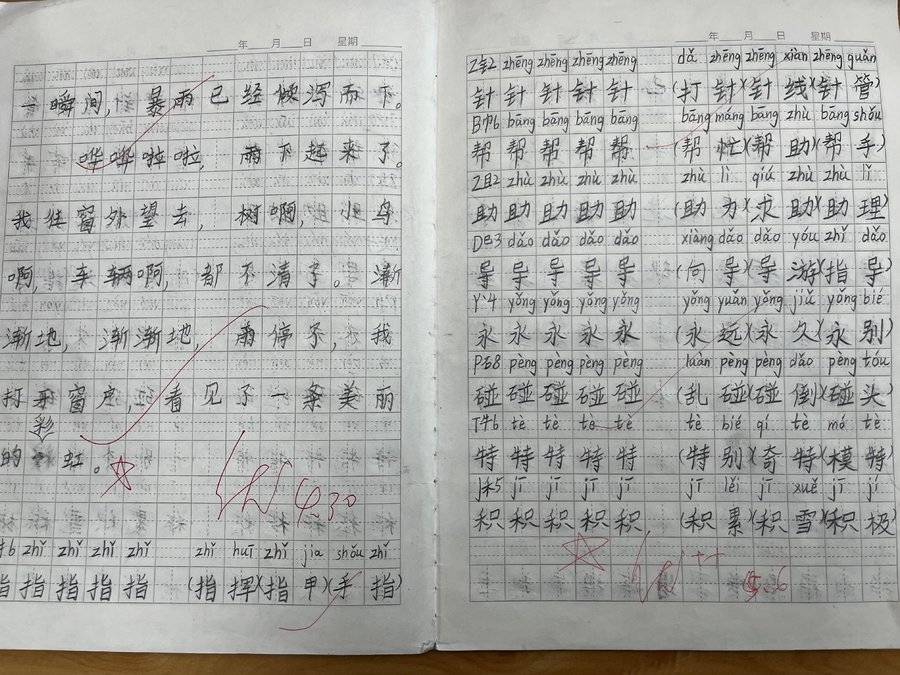 年 月 日 星期
一瞬间，暴雨已经倾泻而下。
哗哗啦啦，雨下起来了。
我往窗外望去，树啊，小鸟
啊，车辆啊，都不清了。渐
渐地，渐渐地，雨停了，我
打开窗户，看见了一条美丽
彩
的虹。
4.30
zhǐ zhǐ zhǐ zhǐ zhǐ huī zhǐ jia shǒu zhǐ
指 指 指 指 指 (指 挥)(指 甲)(手 指)
年 月 日 星期
Z钅2 zhēng zhēng zhēng zhēng dǎ zhēng zhēng xiàn zhēng guǎn
针 针 针 针 针 (打 针)(针 线)(针 管)
B巾6 bāng bāng bāng bāng bāng máng bāng zhù bāng shǒu
帮 帮 帮 帮 帮 (帮 忙)(帮 助)(帮 手)
Z且2 zhù zhù zhù zhù zhù lì qiú zhù zhù lǐ
助 助 助 助 助 (助 力)(求 助)(助 理)
D巳3 dǎo dǎo dǎo dǎo xiàng dǎo dǎo yóu zhǐ dǎo
导 导 导 导 导 (向 导)(导 游)(指 导)
Y丶4 yǒng yǒng yǒng yǒng yǒng yuǎn yǒng jiǔ yǒng bié
永 永 永 永 永 (永 远)(永 久)(永 别)
P石8 pèng pèng pèng pèng luàn pèng pèng dǎo pèng tóu
碰 碰 碰 碰 碰 (乱 碰)(碰 倒)(碰 头)
T牛6 tè tè tè tè tè bié qí tè mó tè
特 特 特 特 特 (特 别)(奇 特)(模 特)
J禾5 jī jī jī jī jī lěi jī xuě jī jí
积 积 积 积 积 (积 累)(积 雪)(积 极)
5.6